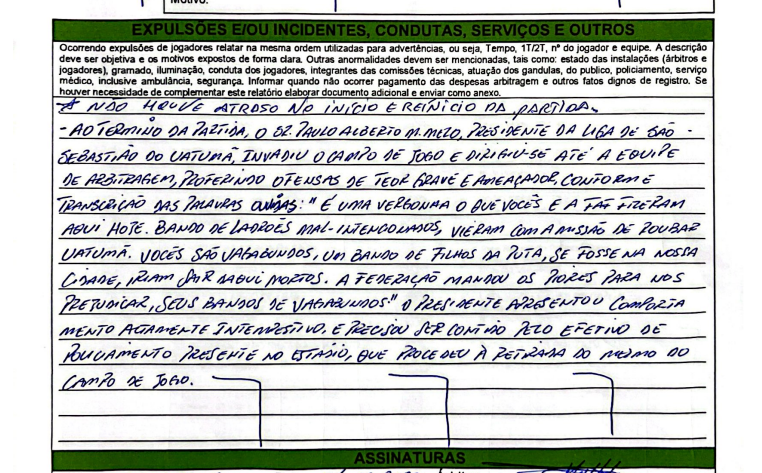 Motivo:
EXPULSÕES E/OU INCIDENTES, CONDUTAS, SERVIÇOS E OUTROS
Ocorrendo expulsões de jogadores relatar na mesma ordem utilizadas para advertências, ou seja, Tempo, 1T/2T, nº do jogador e equipe. A descrição
deve ser objetiva e os motivos expostos de forma clara. Outras anormalidades devem ser mencionadas, tais como: estado das instalações (árbitros e
jogadores), gramado, iluminação, conduta dos jogadores, integrantes das comissões técnicas, atuação dos gandulas, do publico, policiamento, serviço
médico, inclusive ambulância, segurança. Informar quando não ocorrer pagamento das despesas arbitragem e outros fatos dignos de registro. Se
houver necessidade de complementar este relatório elaborar documento adicional e enviar como anexo.
NÃO HOUVE ATRASO NO INÍCIO E REINÍCIO DA PARTIDA.
- AO TÉRMINO DA PARTIDA, O SR. PAULO ALBERTO M. MELO, PRESIDENTE DA LIGA DE SÃO -
SEBASTIÃO DO UATUMÃ, INVADIU O CAMPO DE JOGO E DIRIGIU-SE ATÉ A EQUIPE
DE ARBITRAGEM, PROFERINDO OFENSAS DE TEOR GRAVE E AMEAÇADOR, CONFORME
TRANSCRIÇÃO DAS PALAVRAS OUVIDAS: "É UMA VERGONHA O QUE VOCÊS E A FAF FIZERAM
AQUI HOJE. BANDO DE LADRÕES MAL-INTENCIONADOS, VIERAM COM A MISSÃO DE ROUBAR
UATUMÃ. VOCÊS SÃO VAGABUNDOS, UM BANDO DE FILHOS DA PUTA, SE FOSSE NA NOSSA
CIDADE, IRIAM SAIR DAQUI MORTOS. A FEDERAÇÃO MANDOU OS PIORES PARA NOS
PREJUDICAR, SEUS BANDOS DE VAGABUNDOS." O PRESIDENTE APRESENTOU COMPORTA
MENTO ALTAMENTE INTEMPESTIVO, E PRECISOU SER CONTIDO PELO EFETIVO DE
POLICIAMENTO PRESENTE NO ESTÁDIO, QUE PROCEDEU À RETIRADA DO MESMO DO
CAMPO DE JOGO.
ASSINATURAS